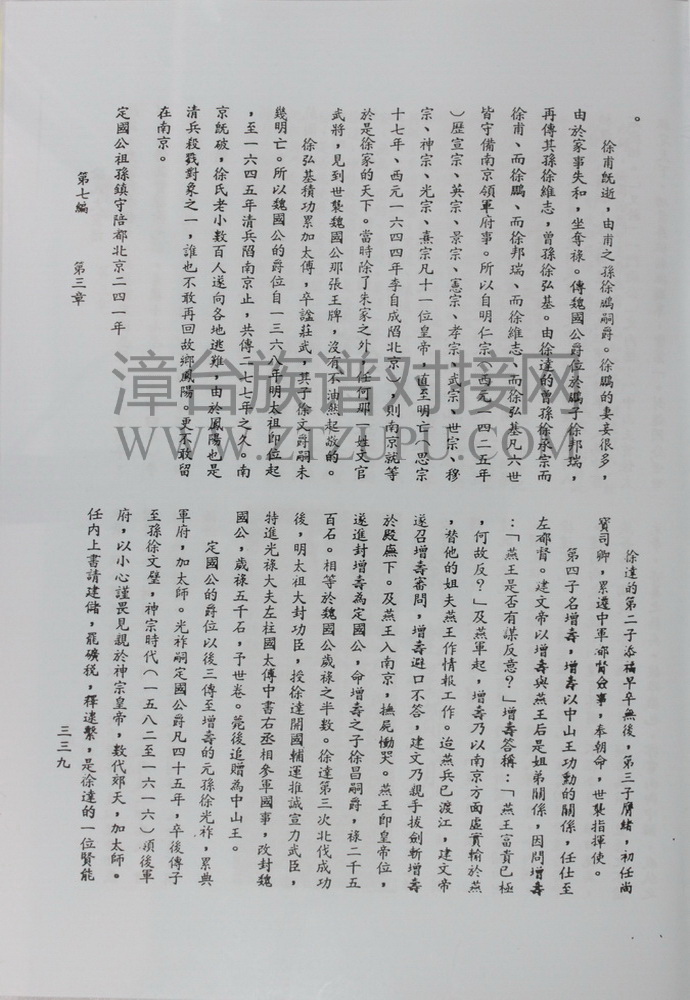 。
徐甫既逝，由甫之孫徐鵬嗣爵。徐鵬的妻妾很多，
由於家事失和，坐奪祿。傳魏國公爵位於鵬子徐邦瑞，
再傳其孫徐維志，曾孫徐弘基。由徐達的曾孫徐承宗而
徐甫、而徐鵬、而徐邦瑞、而徐維志、而徐弘基凡六世
皆守備南京領軍府事。所以自明仁宗（西元一四二五年
）歷宣宗、英宗、景宗、憲宗、孝宗、武宗、世宗、穆
宗、神宗、光宗、熹宗凡十一位皇帝，直至明亡（思宗
十七年、西元一六四四年李自成陷北京），則南京就等
於是徐家的天下。當時除了朱家之外，任何那一姓文官
武將，見到世襲魏國公那張王牌，沒有不油然起敬的。
徐弘基積功累加太傅，卒謚莊武，其子徐文爵嗣未
幾明亡。所以魏國公的爵位自一三六八年明太祖即位起
，至一六四五年清兵陷南京止，共傳二七七年之久。南
京既破，徐氏老小數百人遂向各地逃難，由於鳳陽也是
清兵殺戮對象之一，誰也不敢再回故鄉鳳陽。更不敢留
在南京。
定國公祖孫鎮守陪都北京二四一年
徐達的第二子添福早卒無後，第三子膺緒，初任尚
寶司卿，累遷中軍都督僉事，奉朝命，世襲指揮使。
第四子名增壽，增壽以中山王功勳的關係，任仕至
左都督。建文帝以增壽與燕王后是姐弟關係，因問增壽
：「燕王是否有謀反意？」增壽答稱：「燕王富貴已極
，何故反？」及燕軍起，增壽乃以南京方面虛實輸於燕
，替他的姐夫燕王作情報工作。迨燕兵已渡江，建文帝
遂召增壽審問，增壽避口不答，建文乃親手拔劍斬增壽
於殿廡下。及燕王入南京，撫屍慟哭。燕王即皇帝位，
遂進封增壽為定國公，命增壽之子徐昌嗣爵，祿二千五
百石。相等於魏國公歲祿之半數。徐達第三次北伐成功
後，明太祖大封功臣，授徐達開國輔運推誠宣力武臣，
特進光祿大夫左柱國太傅中書右丞相參軍國事，改封魏
國公，歲祿五千石，予世卷。薨後追贈為中山王。
定國公的爵位以後三傳至增壽的元孫徐光祚，累典
軍府，加太師。光祚嗣定國公爵凡四十五年，卒後傳子
至孫徐文璧，神宗時代（一五八二至一六一六）項後軍
府，以小心謹畏見親於神宗皇帝，數代郊天，加太師。
任內上書請建儲，罷礦稅，釋逮繫，是徐達的一位賢能
第七編　第三章
三三九
漳台族谱对接网
WWW.ZTZUPU.COM